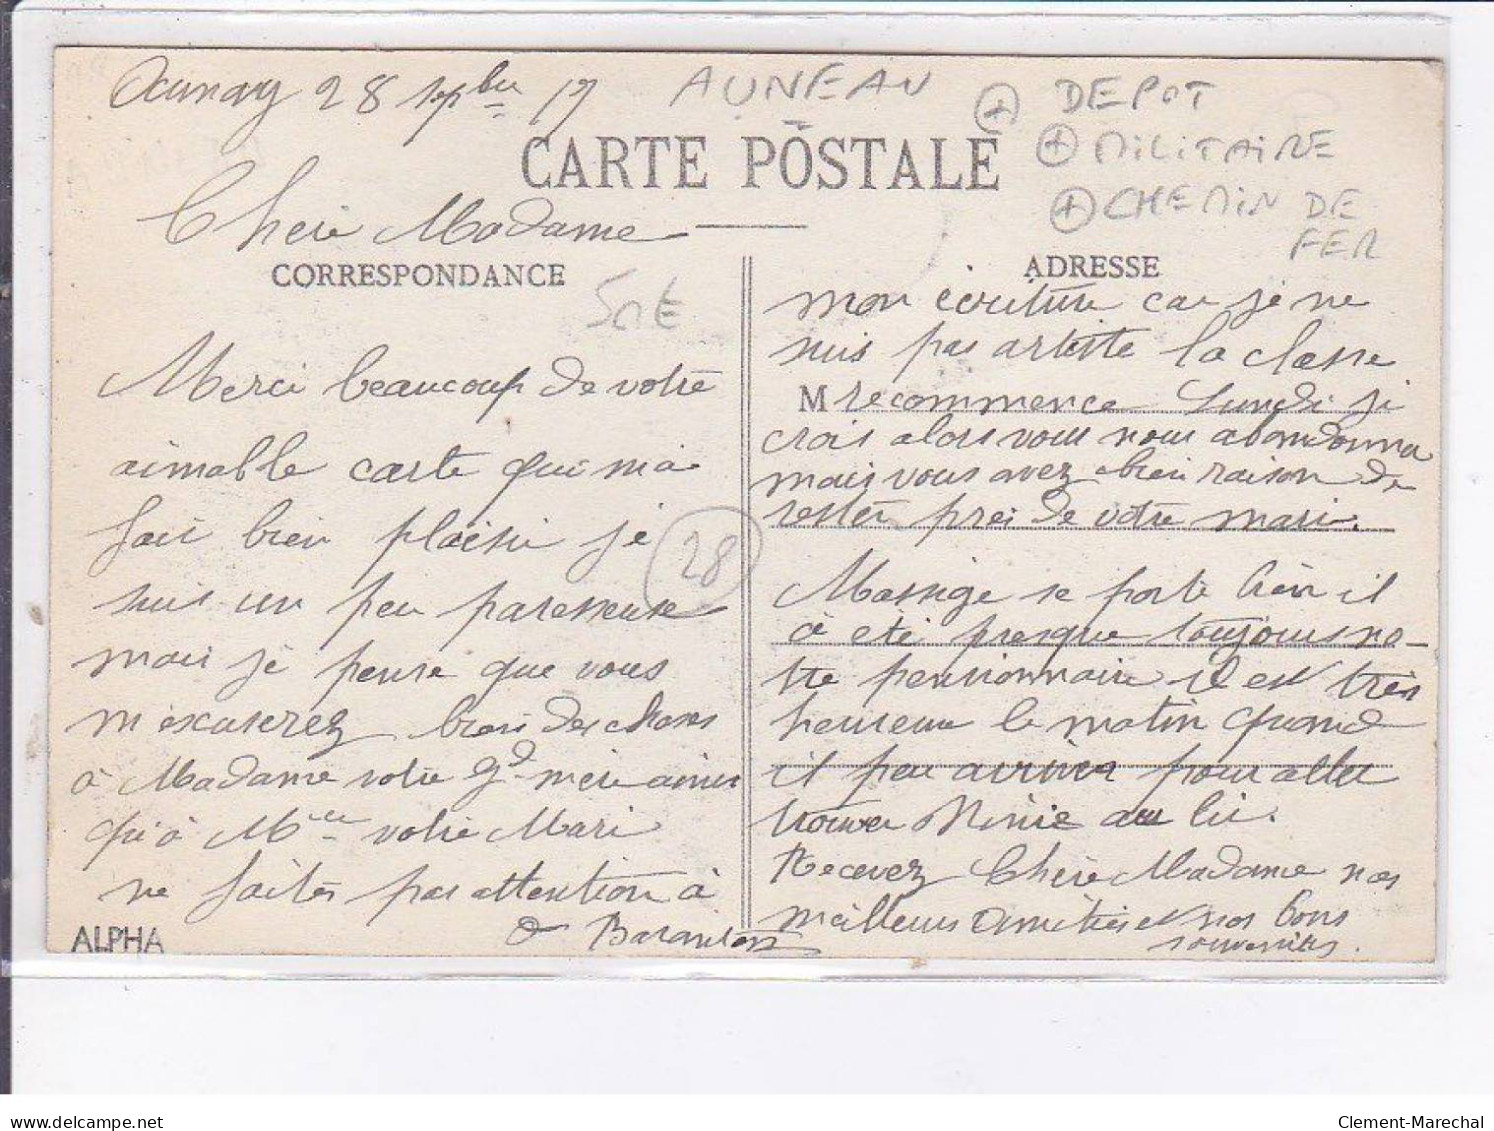 Aunay 28 7bre 17
AUNEAU
+ DEPOT
+ MILITAIRE
+ CHEMIN DE
FER
CARTE POSTALE
Chere Madame
CORRESPONDANCE
50€
Merci beaucoup de votre
aimable carte qui m'a
fait bien plaisir je
suis un peu paresseuse
mais je pense que vous
m'excuserez bien des choses
à Madame votre Gd mère ainsi
qu'à Mr votre Mari
ne faites pas attention à
ALPHA
28
ADRESSE
mon ecriture car je ne
suis pas artiste la classe
M recommence Lundi je
crois alors vous nous abandonna
mais vous avez bien raison de
rester pres de votre mari.
Massige se porte bien il
à eté presque toujours no-
tre pensionnaire il est très
heureux le matin quand
il peu arriver pour aller
trouver Ninie au lit.
Recevez Chère Madame nos
meilleurs amitiés et nos bons
souvenirs.
www.delcampe.net
Clement-Marechal